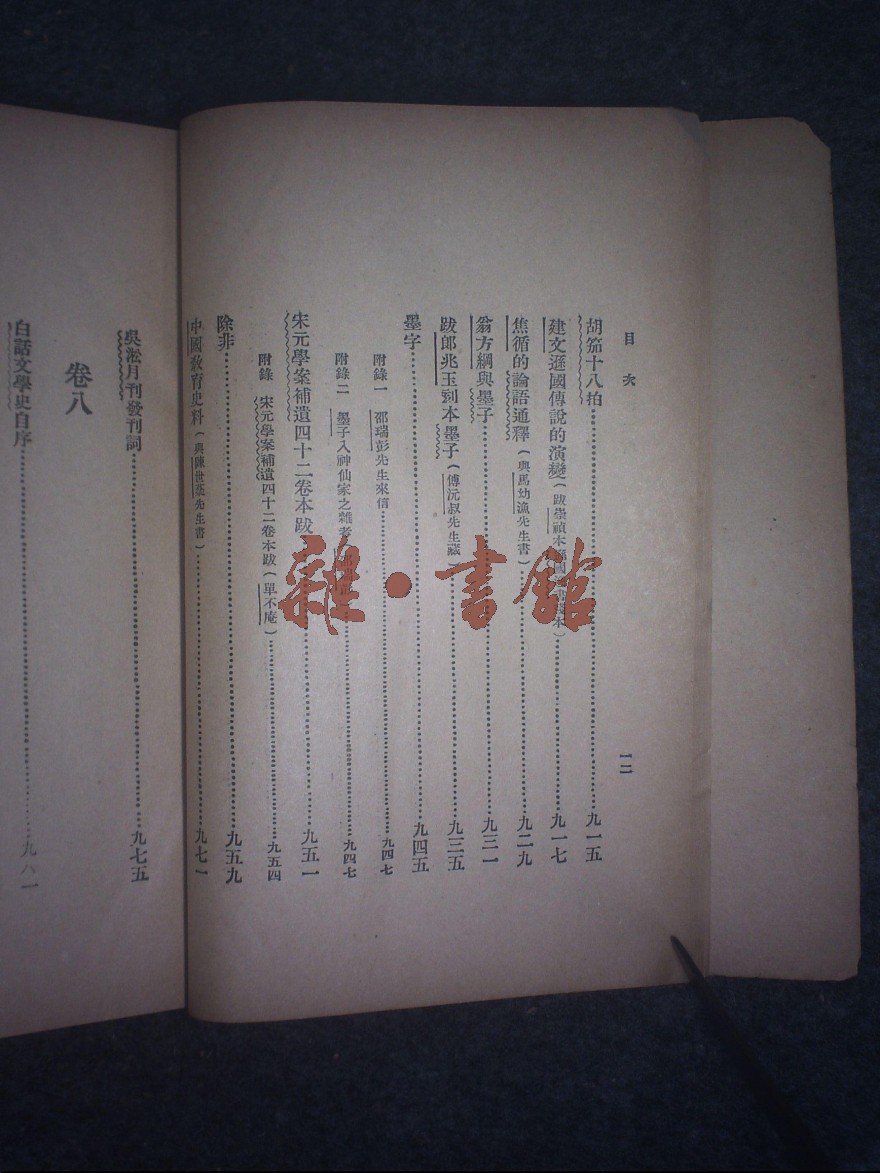 目次
一二
胡笳十八拍……九一五
建文遜國傳說的演變(跋崇禎本……本)……九一七
焦循的論語通釋(與馬幼漁先生書)……九二九
翁方綱與墨子……九三一
跋郎兆玉刻本墨子(傅沅叔先生藏)……九三五
墨字……九四五
附錄一 邵瑞彭先生來信……九四七
附錄二 墨子入神仙家之雜考……九四七
宋元學案補遺四十二卷本跋……九五一
附錄 宋元學案補遺四十二卷本跋(單不庵)……九五四
除非……九五九
中國教育史料(與陳世棻先生書)……九七一
吳淞月刊發刊詞……九七五
卷八
白話文學史自序……九八一
雜·書館